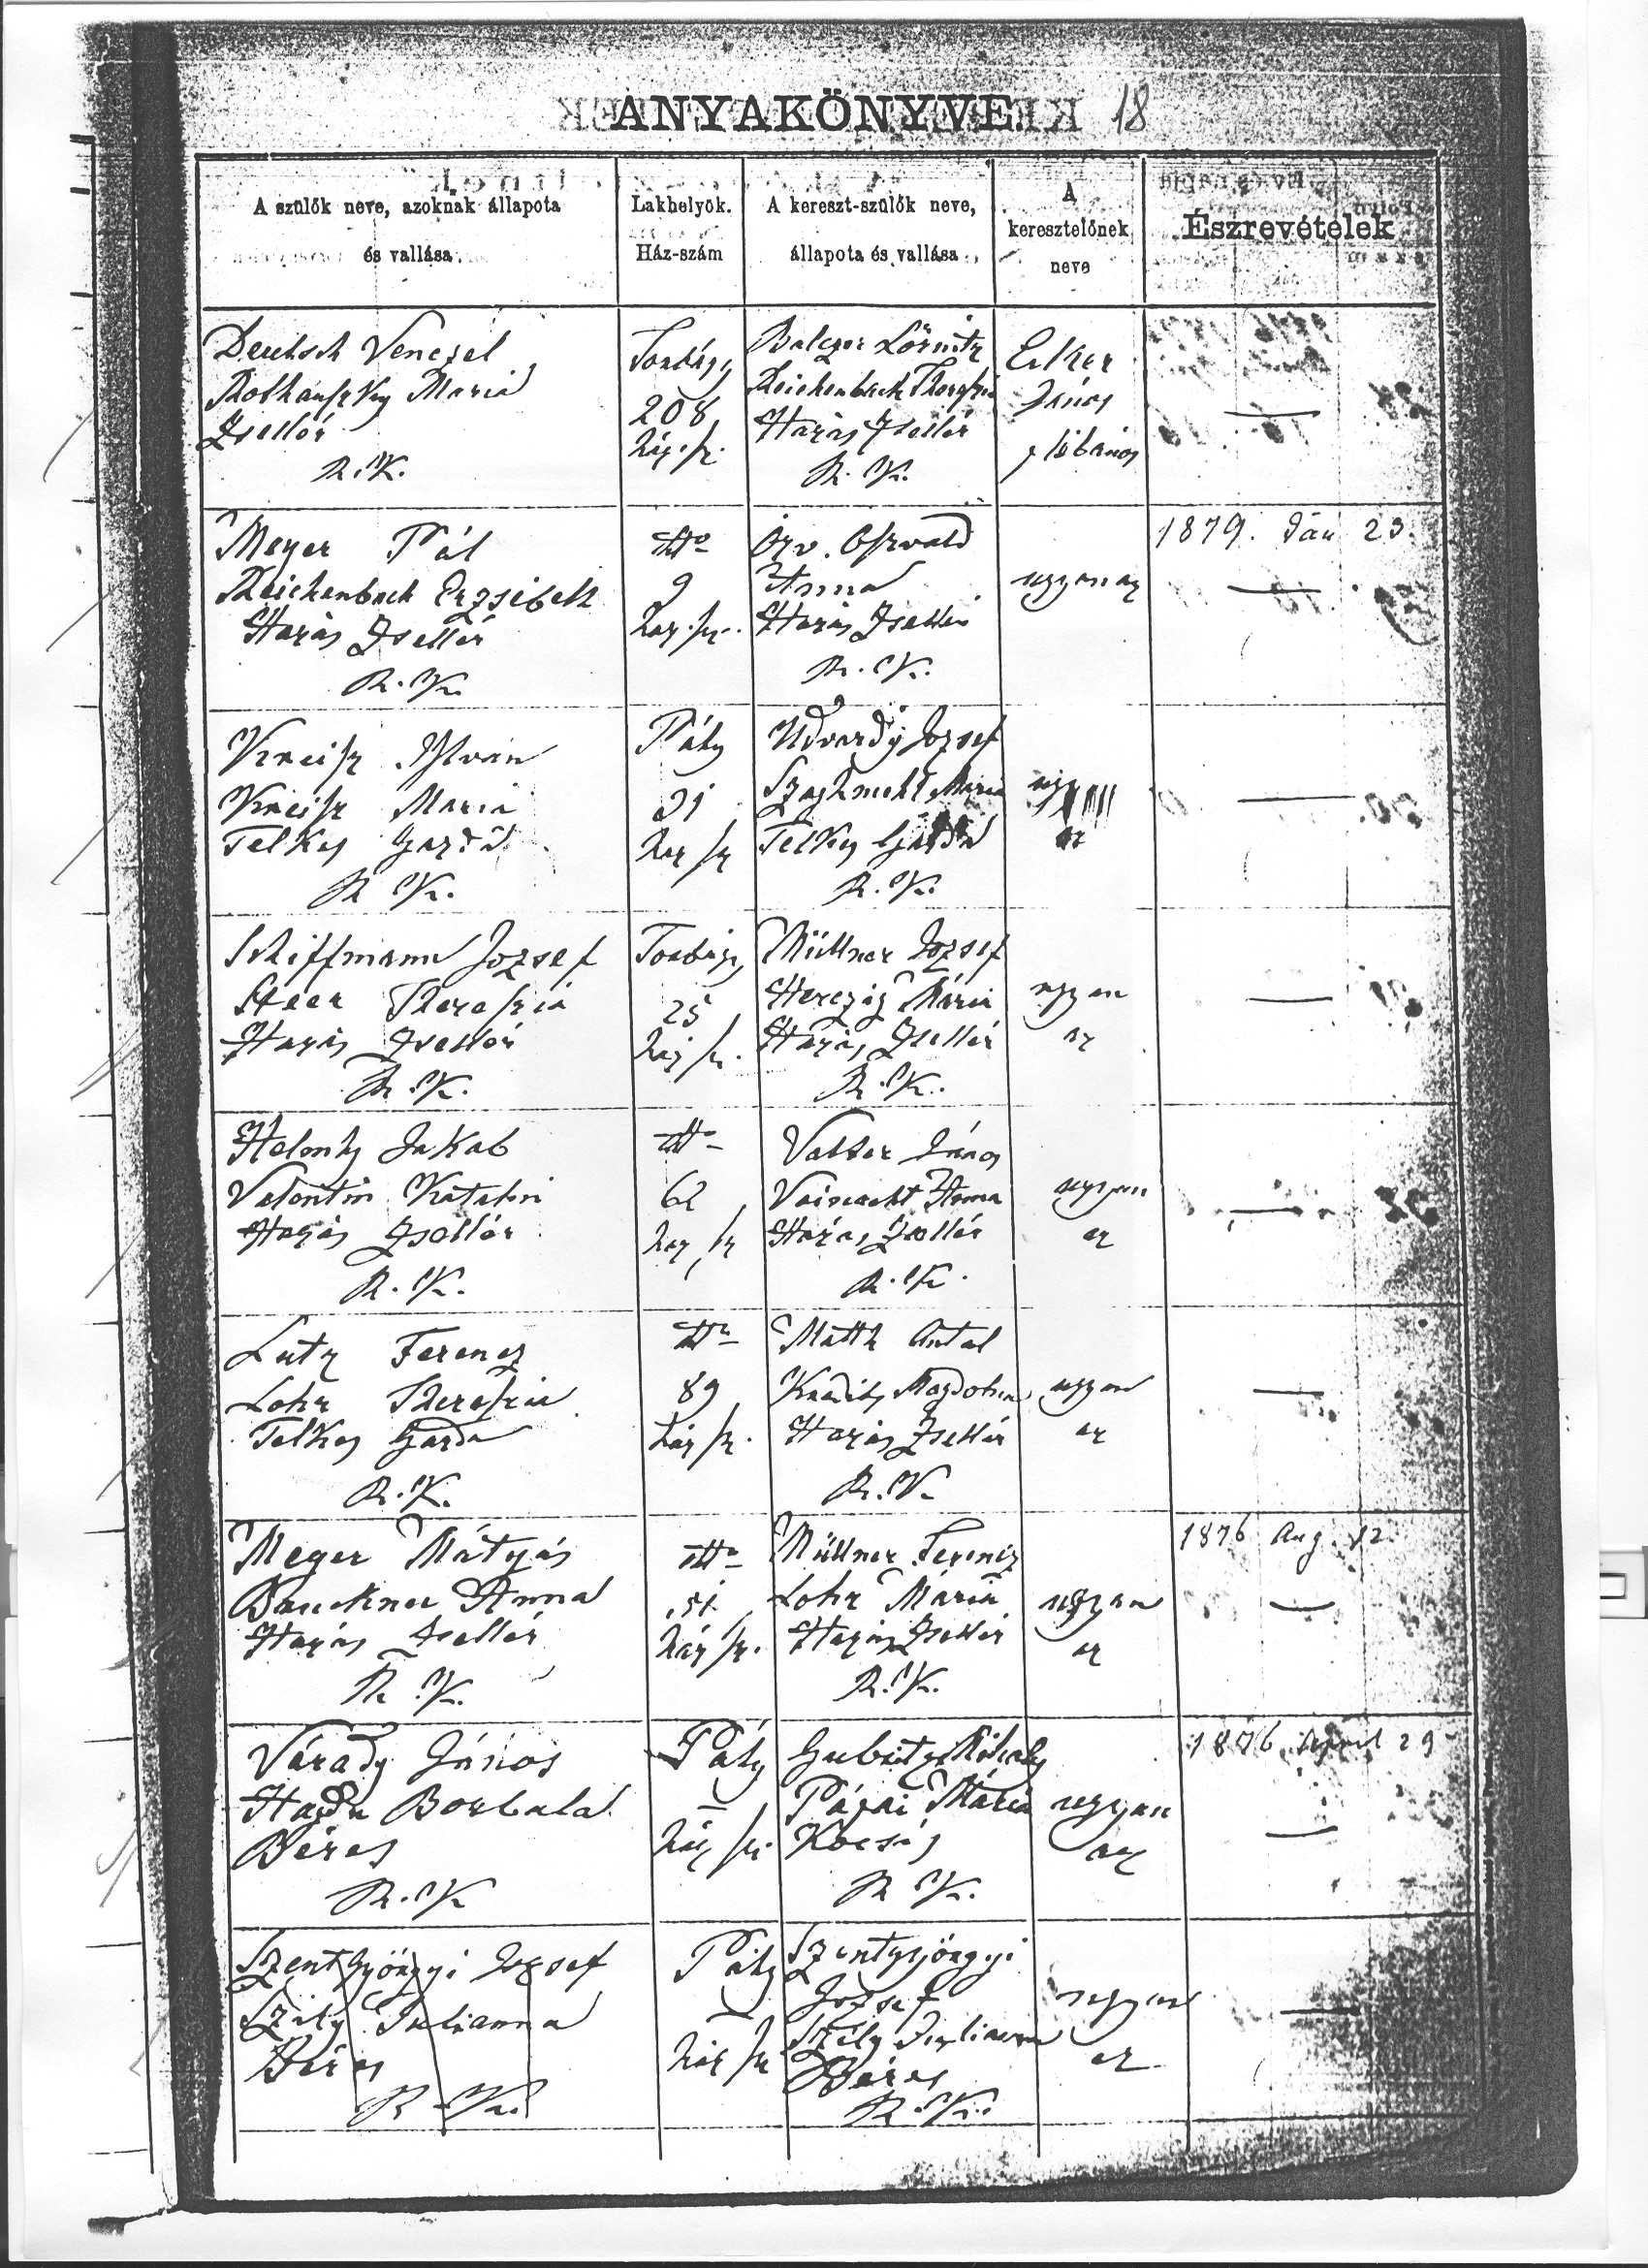 ANYAKÖNYVE 18
A szülők neve, azoknak állapota
és vallása
Lakhelyök.
Ház-szám
A kereszt-szülők neve,
állapota és vallása
A
keresztelőnek
neve
Észrevételek
Deutsch Venczel
Maria
Zsellér
R. K.
Torbágy
208
ház. sz.
Balczer
Reichenbach Theresia
Házas Zsellér
R. K.
János
plébános
Meyer Pál
Reichenbach Erzsébeth
Házas Zsellér
R. K.
9
ház. sz.
Özv. Oszvald
Anna
Házas Zsellér
R. K.
ugyanaz
1879. Jan 23.
Kreisz István
Kreisz Maria
Telkes Gazda
R K.
Páty
31
ház sz
Udvardy Jozsef
Maria
Telkes Gazda
R. K.
az
Schiffmann Jozsef
Steer Theresia
Házas Zsellér
R. K.
Torbágy
25
ház sz.
Müllner Jozsef
Herczig Mária
Házas Zsellér
R. K.
ugyan
az
Jakab
Valentin Katalin
Házas Zsellér
R. K.
62
ház sz
János
Anna
Házas Zsellér
R. K.
ugyan
az
Lutz Ferencz
Lohr Theresia
Telkes Gazda
R. K.
89
ház sz.
Matth Antal
Magdolna
Házas Zsellér
R. K.
ugyan
az
Meyer Mátyás
Bruckner Anna
Házas Zsellér
R. K.
51
ház sz.
Müllner Ferencz
Lohr Mária
Házas Zsellér
R. K.
ugyan
az
1876 Aug. 12.
Várady János
Hajdu Borbala
Béres
R. K
Páty
ház sz.
Mihaly
Pázsi Mária
Kocsis
R K.
ugyan
az
1876 April 29
Szentgyöngyi Jozsef
Szily Julianna
Béres
R. K.
Páty
ház sz
Szentgyöngyi
Jozsef
Szily Julianna
Béres
R. K.
ugyan
az